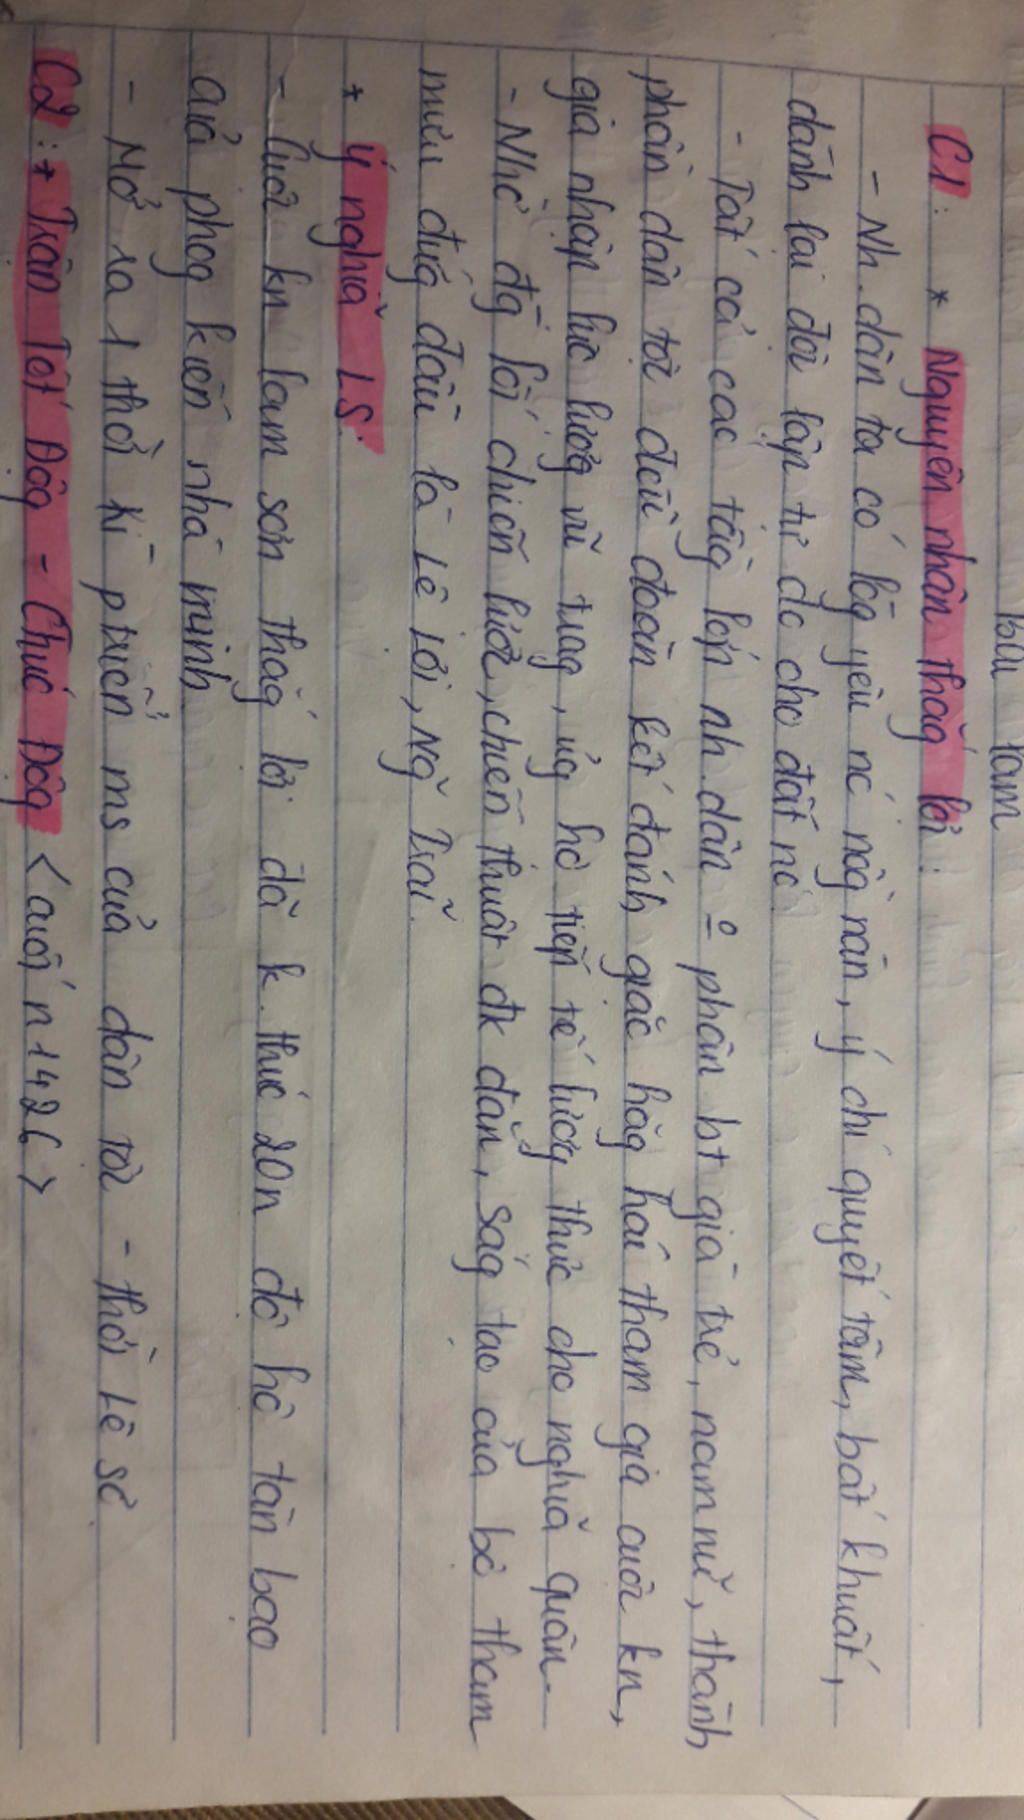 C1: * Nguyên nhân thắg lợi:
- Nh.dân ta có lòg yêu nc nồg nàn, ý chí quyết tâm, bất khuất,
dành lại độc lập tự do cho đất nc
- Tất cả các tầg lớp nh.dân o phân bt già trẻ, nam nữ, thành
phần dân tộc đều đoàn kết đánh giặc hăg hái tham gia cuộc kn,
gia nhập lực lượg vũ trag, ủg hộ tiếp tế lươg thực cho nghĩa quân.
- Nhờ đg lối chiến lược, chiến thuật đk đắn,ság tạo của bộ tham
mưu đứg đầu là Lê Lợi, Ng Trãi.
* Ý nghĩa LS:
- Cuộc kn lam sơn thắg lợi đã k.thúc 20n đô hộ tàn bạo
của phog kiến nhà minh
- Mở ra 1 thời kì ptriển ms của dân tộc - thời Lê sơ
C2: * Trận Tốt Độg - Chúc Độg <cuối n 1426>